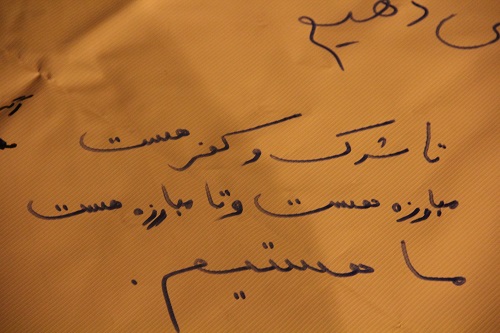 می دهیم
تا شرک و کفر هست
مبارزه هست و تا مبارزه هست
ما هستیم.